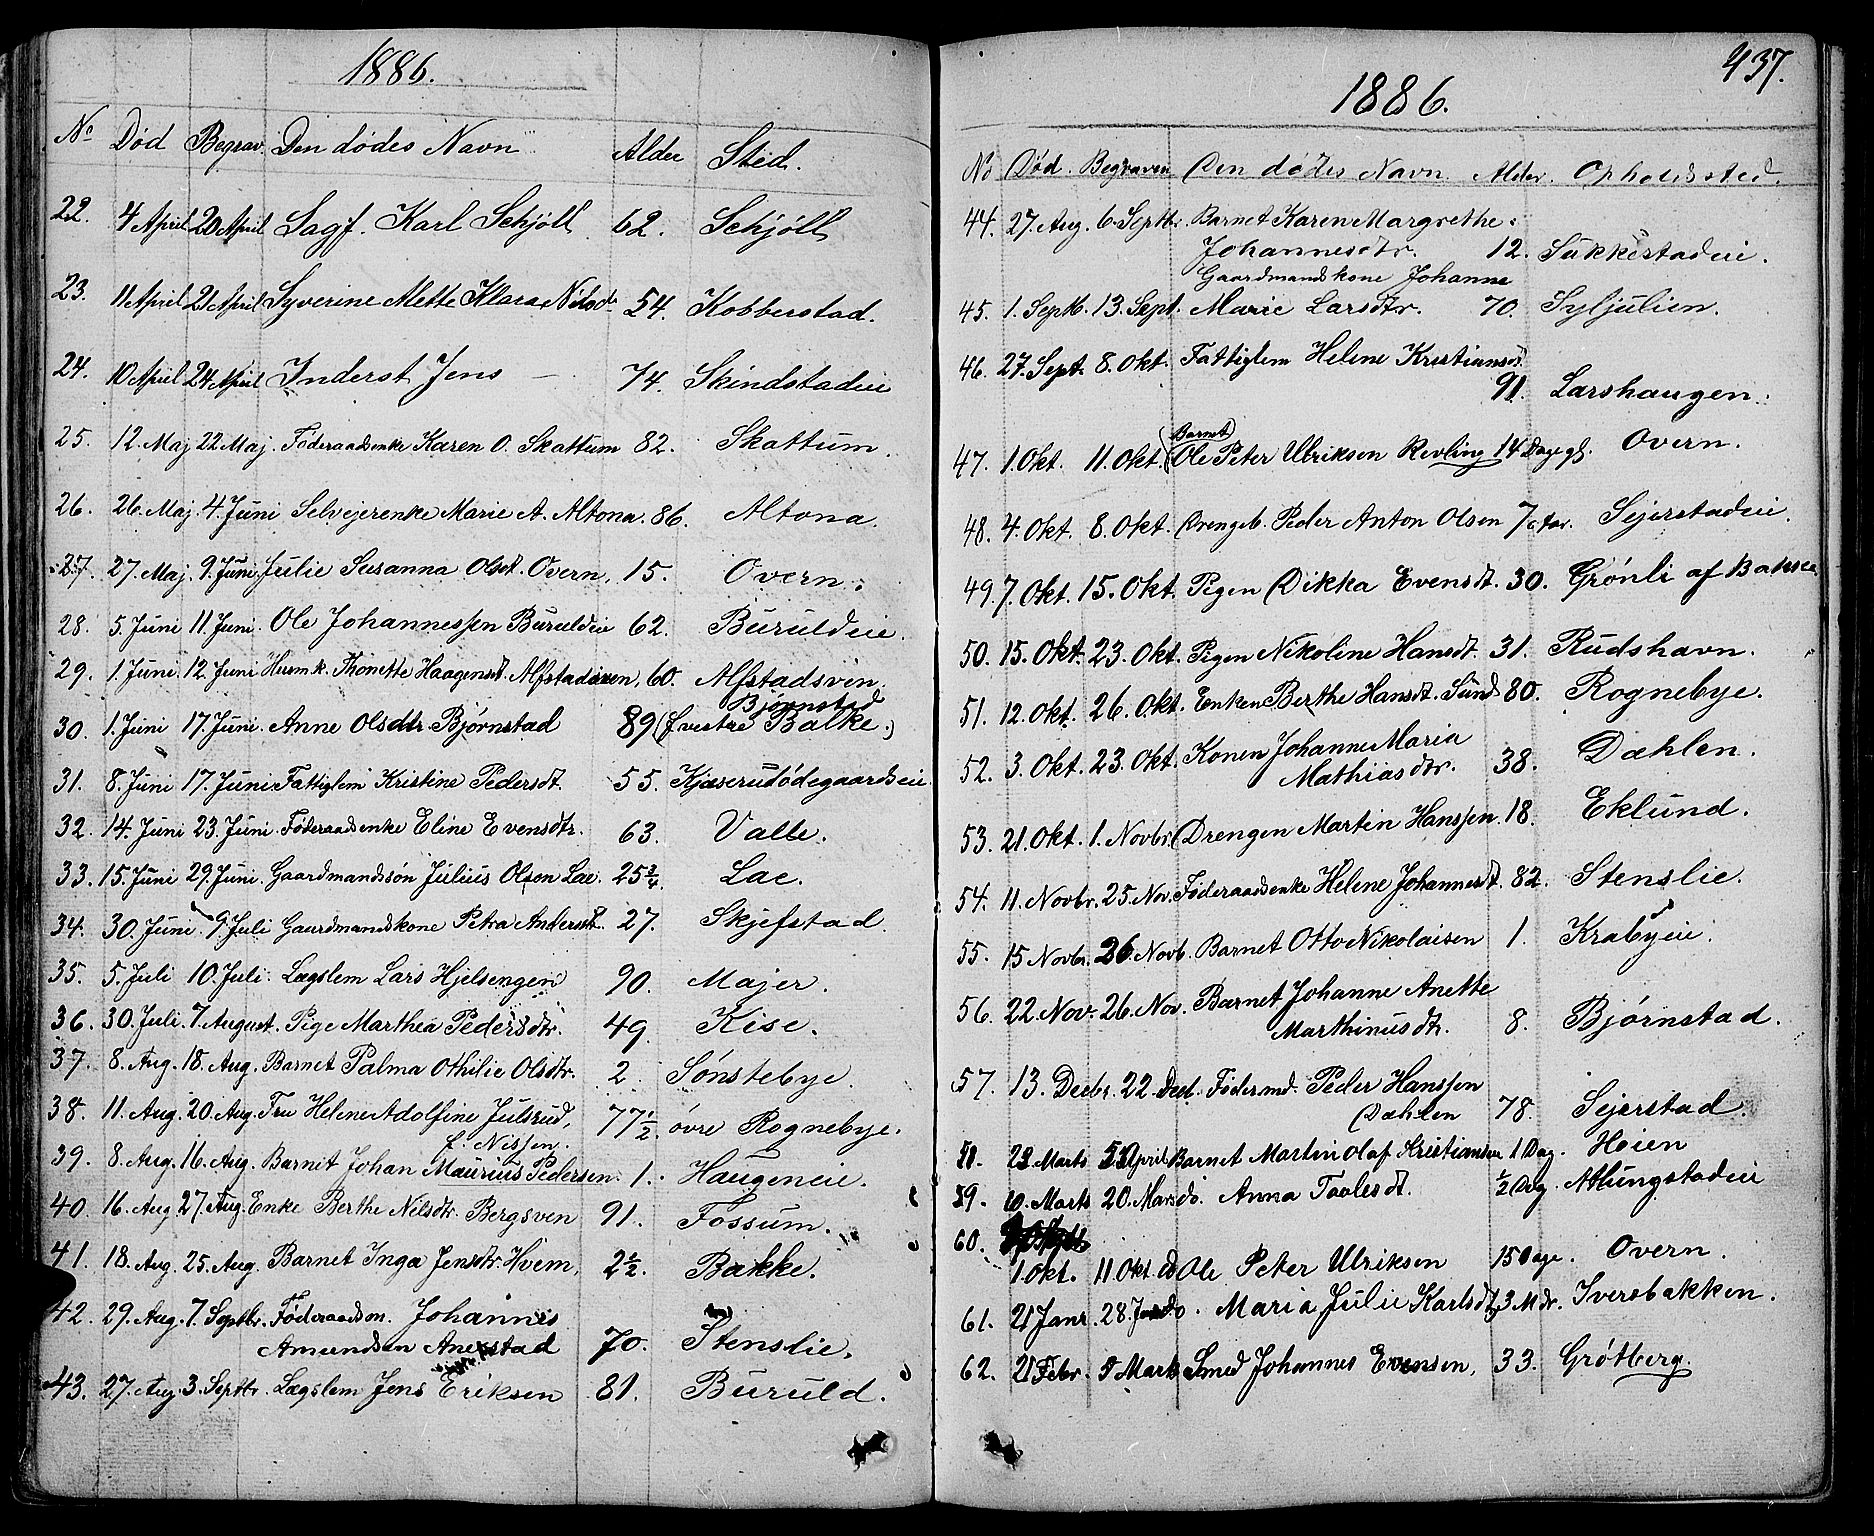 1886.
No Død Begrav. Den dødes Navn Alder Sted.
22. 4 April 20 April Sagf. Karl Schjöll 62. Schjöll
23. 11 April 21 April Syverine Mette Klara Nilsd. 54. Kobberstad.
24. 10 April 24 April Inderst Jens — 74. Skindstadeie
25. 12. Maj 22 Maj. Føderaadsenke Karen O. Skattum 82. Skattum.
26. 26. Maj. 4. Juni Selvejerenke Marie A. Altona. 86. Altona.
27. 27. Maj. 9. Juni Julie Susanna Olsdt. Overn, 15. Overn.
28. 5. Juni 11. Juni. Ole Johannessen Buruldeie 62. Buruldeie.
29. 1. Juni. 12. Juni Husmk. Thonette Haagensdt. Alfstadsven, 60. Alfstadsvin.
30. 1. Juni 17. Juni. Anne Olsdtr. Bjørnstad 89 (øvestre Balke.)
Bjørnstad
31. 8. Juni 17. Juni Fattiglem Kristine Pedersdt. 55. Kjæserudødegaardseie
32. 14. Juni 23. Juni. Føderaadsenke Eline Evensdtr. 63. Valle.
33. 15. Juni 29. Juni. Gaardmandssøn Julius Olsen Lae. 25 3/4. Lae.
34. 30. Juni 9. Juli Gaardmandskone Petra Andersdt. 27. Skjefstad.
35. 5. Juli 10. Juli. Lægslem Lars Hjelsengen 90. Majer.
36. 30. Juli. 7. August. Pige Marthea Pedersdtr. 49. Kise.
37. 8. Aug. 18. Aug. Barnet Palma Othilie Olsdtr. 2. Sønstebye.
38. 11. Aug. 20. Aug. Fru Helene Adolfine Julsrud, 77 1/2. øvre Rognebye.
f. Nissen.
39. 8. Aug. 16. Aug. Barnet Johan Maurius Pedersen. 1. Haugeneie.
40. 16. Aug. 27. Aug. Enke Berthe Nilsdtr. Bergsven 91. Fossum.
41. 18. Aug. 25. Aug. Barnet Inga Jensdtr. Hvem, 2 1/2. Bakke.
42. 29. Aug. 7. Septbr. Føderaadsm. Johannes
Amundsen Anerstad 70. Stenslie.
43. 27. Aug. 3. Septbr. Lægslem Jens Eriksen 81. Buruld.
437.
1886.
No Død. Begraven Den dødes Navn. Alder. Opholdssted.
44. 27. Aug. 6. Septbr. Barnet Karen Margrethe
Johannesdtr. 12. Sukkestadeie.
Gaardmandskone Johanne
45. 1. Septb. 13. Sept. Marie Larsdtr. 70. Syljulien.
46. 27. Sept. 8. Okt. Fattiglem Helene Kristiansdt.
91. Larshaugen.
47. 1. Okt. 11. Okt. (Barnet) Ole Peter Ulriksen Revling 14 Dage gl. Overn.
48. 4. Okt. 8. Okt. Drengeb. Peder Anton Olsen 7 Aar. Sejerstadeie.
49. 7. Okt. 15. Okt. Pigen Dikka Evensdt. 30. Grønli af
50. 15. Okt. 23. Okt. Pigen Nikoline Hansdt. 31. Rudshavn.
51. 12. Okt. 26. Okt. Enken Berthe Hansdt. Sund 80. Rognebye.
52. 3. Okt. 23. Okt. Konen Johanne Maria
Mathiasdtr. 38. Dæhlen.
53. 21. Okt. 1. Novbr. Drengen Martin Hanssen. 18. Eklund.
54. 11. Novbr. 25. Nov. Føderaadsenke Helene Johannesdt. 82. Stenslie.
55. 15 Novbr. 26. Novb. Barnet Otto Nikolaisen 1. Krabyeie.
56. 22. Nov. 26. Nov. Barnet Johanne Anette
Marthinusdtr. 8. Bjørnstad.
57. 13. Decbr. 22. Decb. Fødermd. Peder Hanssen
Dæhlen 78. Sejerstad.
58. 22. Marts April Barnet Martin Olaf Kristiansen 1 Dag. Hoien
59. 10. Marts 20. Mars do. Anna Taalesdt. 1/2 Dag. Atlungstadeie
60. 1. Okt. 11 Okt. do Ole Peter Ulriksen 15 Dage. Overn.
61. 21 Janr. 28. Jan do. Maria Julie Karlsdt. 3 Mdr. Iversbakken.
62. 21 Febr. 5 Marts Smed Johannes Evensen, 33. Grøtberg.